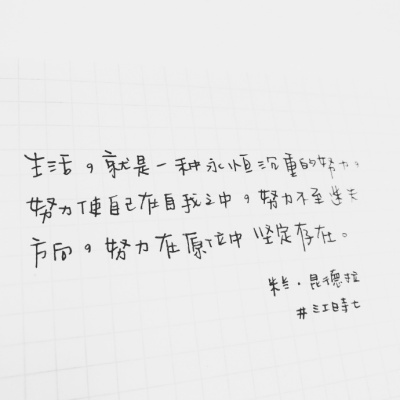 生活，就是一种永恒沉重的努力，
努力使自己在自我之中，努力不至迷失
方向，努力在原位中坚定存在。
米兰·昆德拉